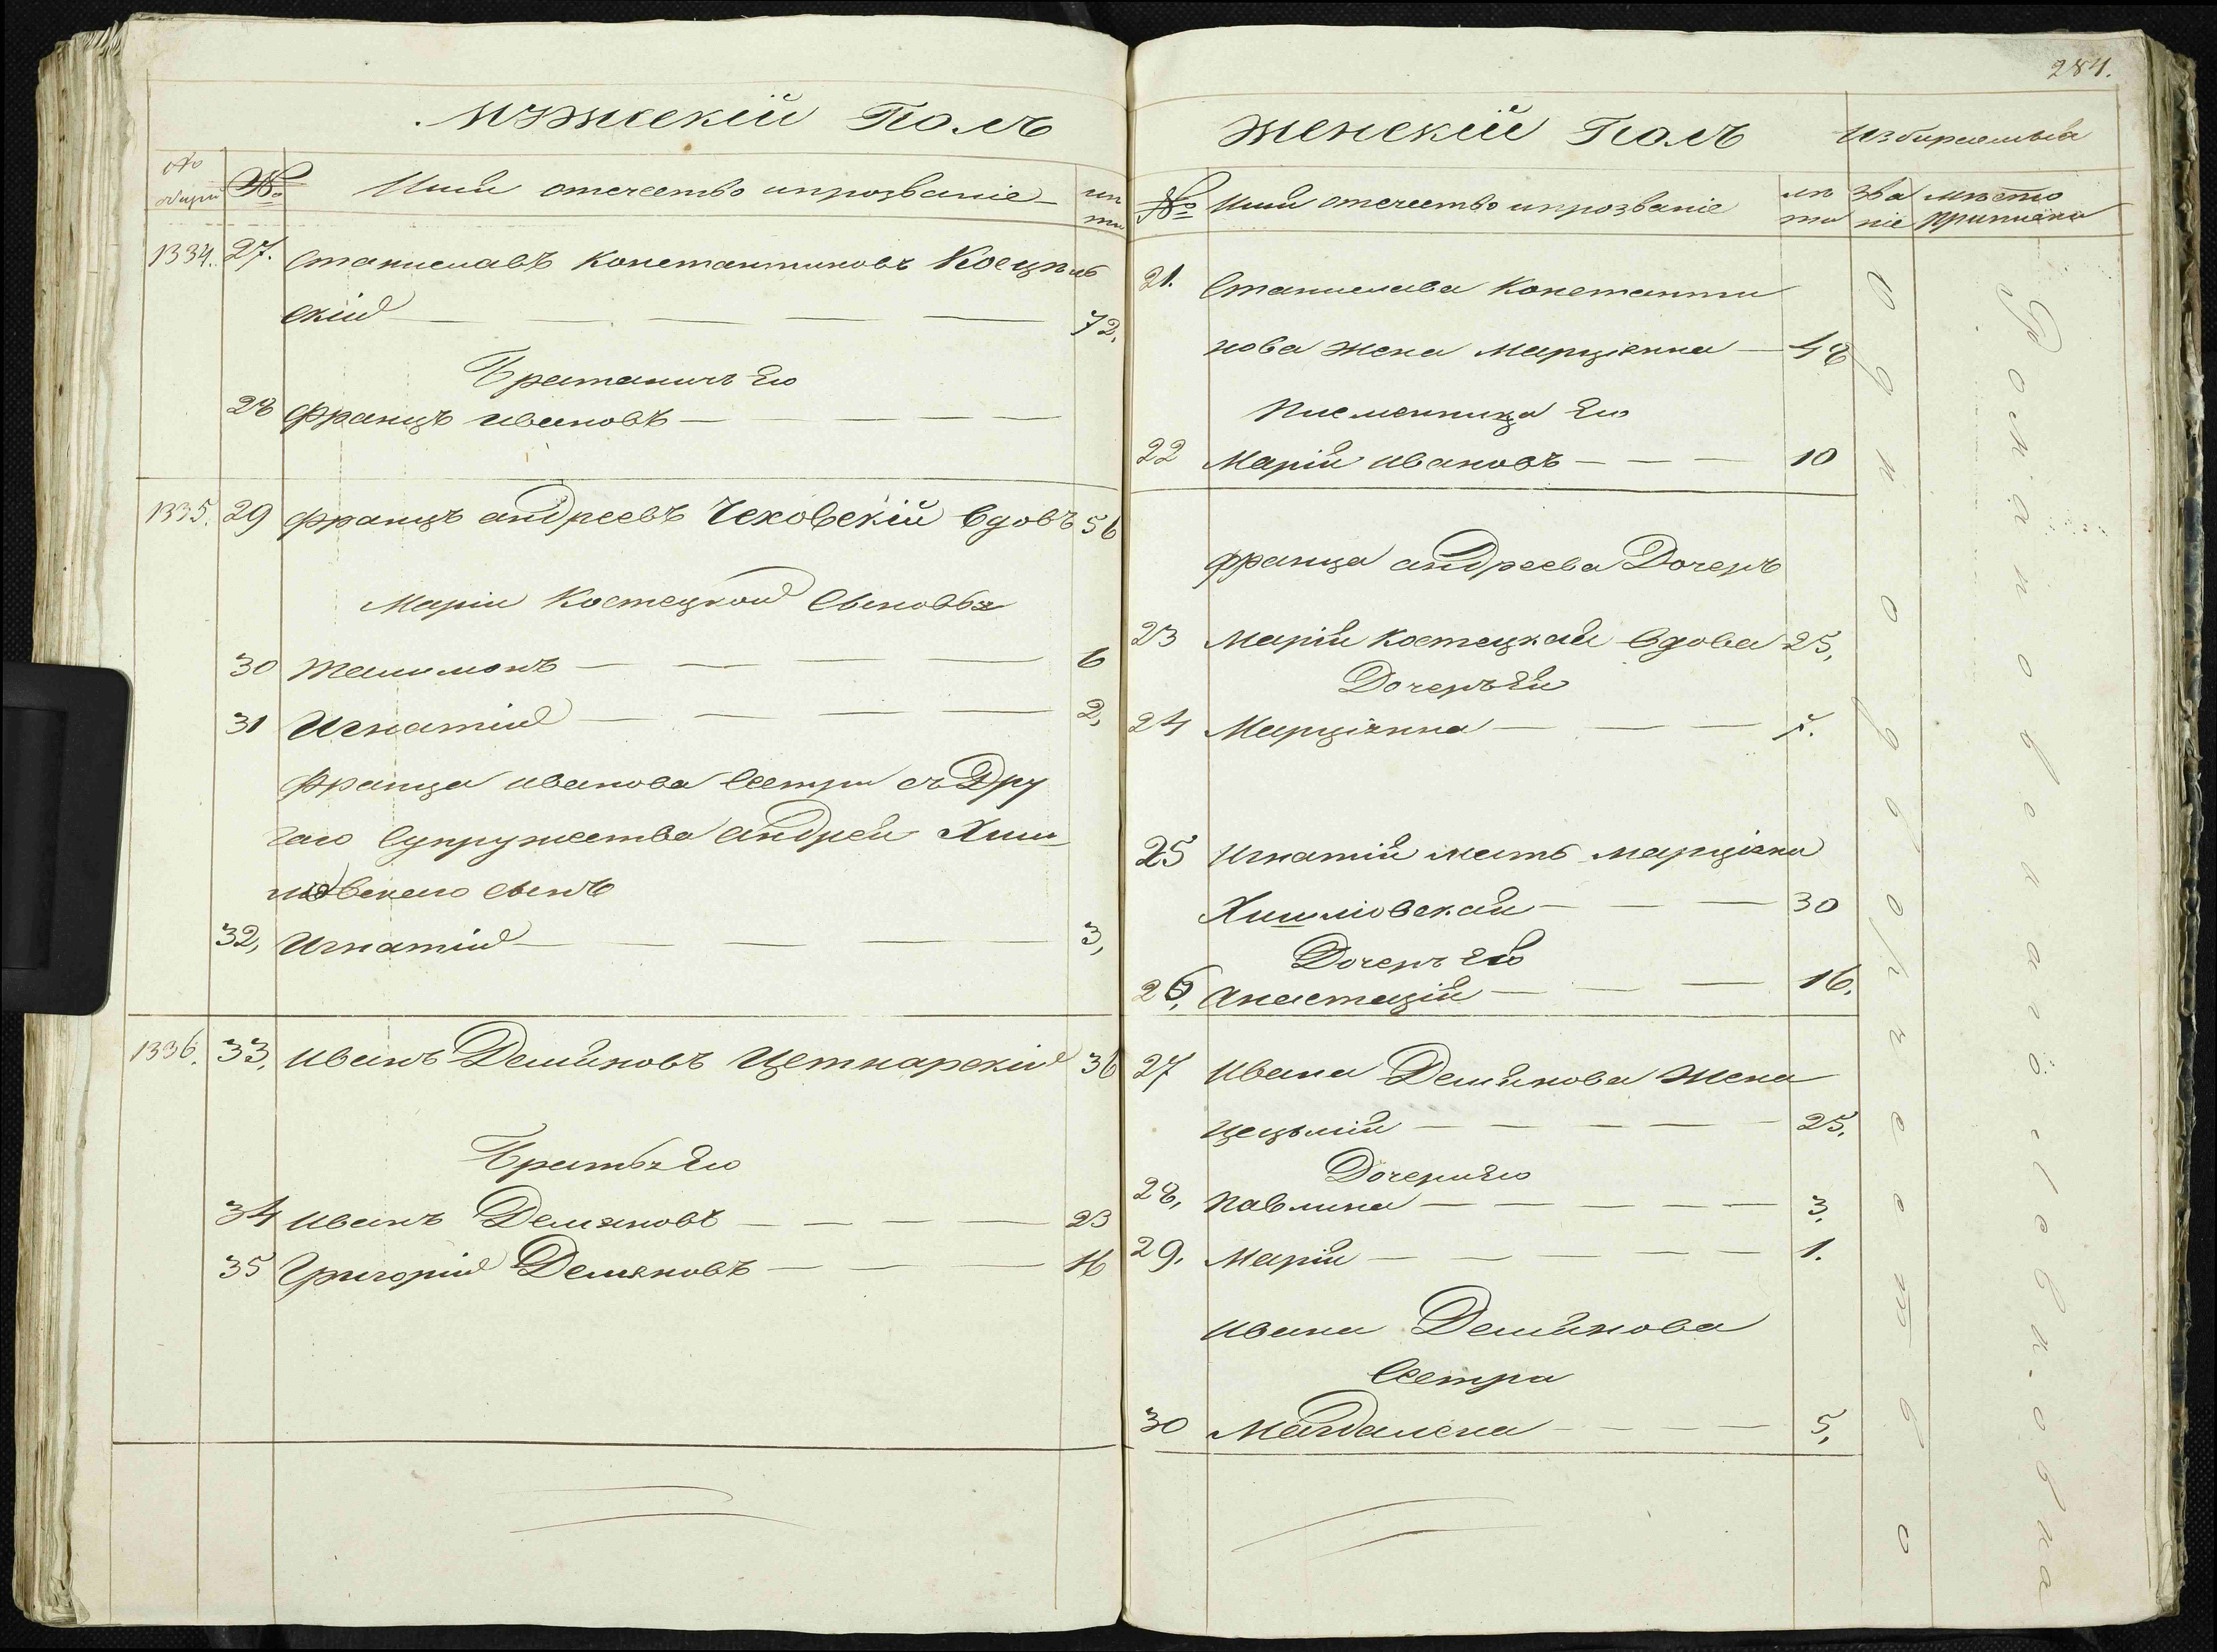 мужеский Полъ
№
№
Имя отечество и прозвание
ле
та
1334. 27. Станиславъ Константиновъ Косцель
ский 72,
Братаничъ Его
28 Францъ Ивановъ
1335. 29 Францъ Андреевъ Чеховский вдовъ 56
Марии Костецкой Сыновья
30 6
31 Игнатий 2,
Франца Иванова Сестры съ Дру
гаго Супружества Андрея
сынъ
32, Игнатий 3,
1336. 33, Иванъ Демяновъ Цетнарский 36
Братья Его
34 Иванъ Демяновъ 23
35 Григорий Демяновъ 16
284.
Женский Полъ
№ Имя отечество и прозвание
ле
та
зва
ние
место
приписки
21. Станислава Константи
нова жена Марцианна 48
Племенница Его
22 Мария Ивановъ 10
Франца Андреева Дочерь
23 Мария Костецкая вдова 25,
Дочерь Ея
24 Марцианна 7.
25 Игнатия мать Марцианна
30
Дочерь Ея
26, Анастазия 16.
27 Ивана Демянова Жена
Цецылия 25.
Дочери Его
28, Павлина 3,
29. Мария 1.
Ивана Демянова
Сестра
30 Магдалена 5,
Однодворческое
Романовского